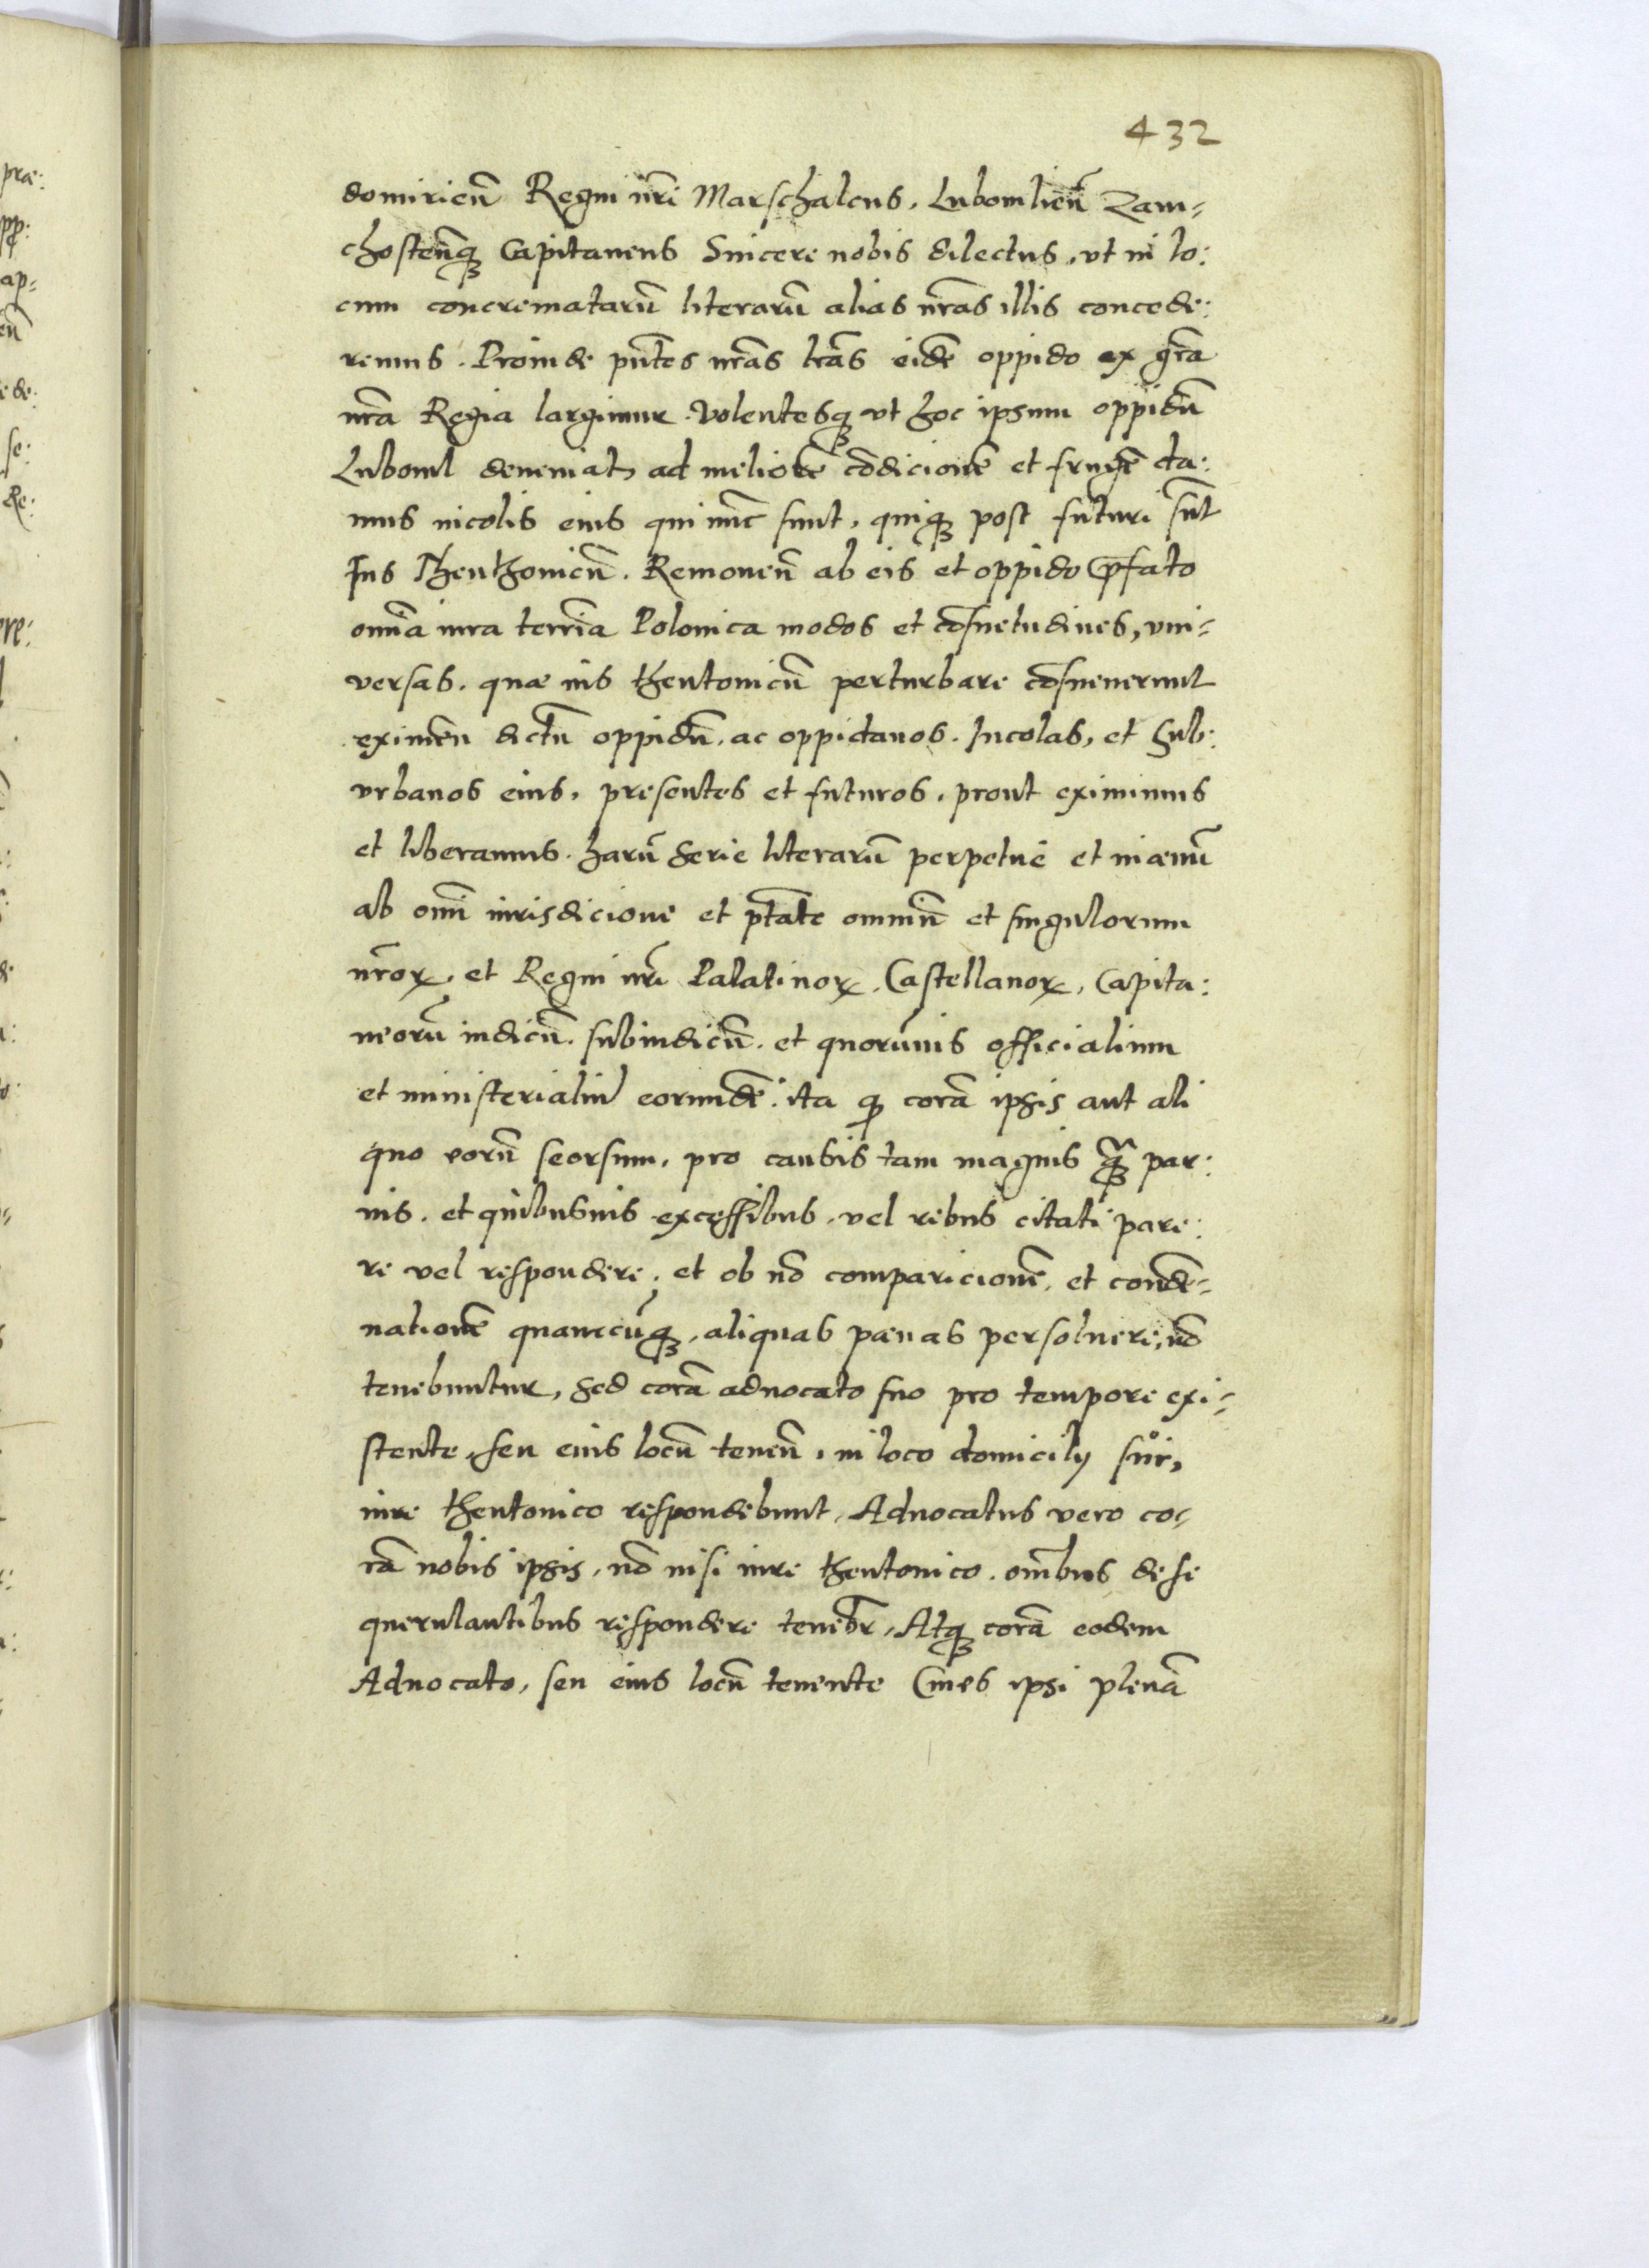 432
domirieñ Regni nr̃i Marschalcus, Lubomlieñ Zam-
chosteñq₃ Capitaneus Sincere nobis dilectus, ut in lo:
cum concrematarũ literarũ alias nr̃as illis concede:
remus. Proinde pñtes nr̃as lr̃as eidẽ oppido ex gr̃a
nr̃a Regia largimur. Volentesq₃ ut hoc ipsum oppidũ
Luboml deveniat, ad meliorẽ cõdicionẽ et frugẽ da:
mus incolis eius qui nũc sunt, quiq₃ post futuri sũt
Ius Theuthonicũ. Removeñ ab eis et oppido p̃fato
om̃ia iura terrr̃ia Polonica modos et cõsuetudines, uni-
versas. quæ ius theutonicũ perturbare cõsueverunt
eximeñ dictũ oppidũ, ac oppidanos. Incolas, et Sub:
urbanos eius, presentes et futuros, prout eximimus
et liberamus. harũ Serie literarũ perpetue et in ævũ
ab om̃i iurisdicione et ptãte omniũ et singulorum
nr̃oꝝ, et Regni nr̃i Palatinoꝝ, Castellanoꝝ, Capita:
neorũ iudicũ. subiudicũ. et quorũvis officialium
et ministerialiũ eorundẽ. ita q̃ corã ipsis aut ali
quo eorũ seorsum, pro causis tam magnis q̃₃ par:
vis. et quibusvis excessibus, vel rebus citati pare:
re vel respondere, et ob nõ comparicionẽ, et condẽ-
nationẽ quamcũq₃, aliquas pænas persolvere, nõ
tenebuntur, Sed corã advocato suo pro tempore exi-
stente, seu eius locũ teneñ, in loco domicilij suor,
iure theutonico respondebunt, Advocatus vero co-
rã nobis ipsis, nõ nisi iure theutonico. om̃ibus de se
querulantibus respondere tenebr̃, Atq₃ corã eodem
Advocato, seu eius locũ tenente Cives ipsi plenã